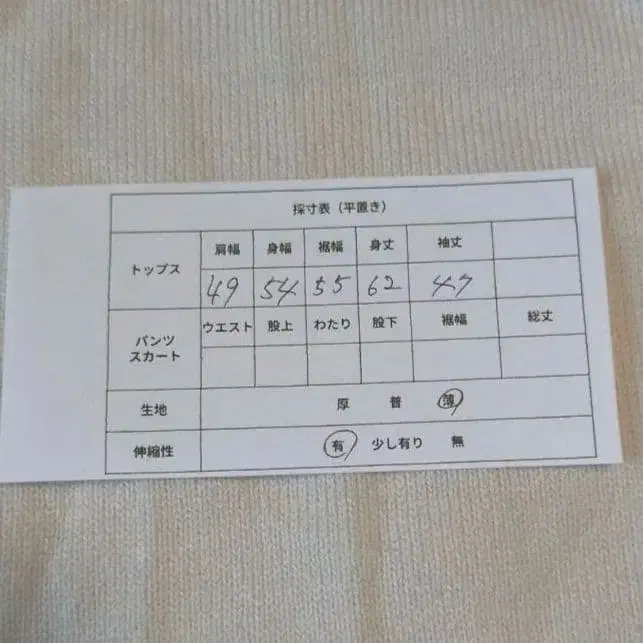 採寸表（平置き）
トップス 肩幅 身幅 裾幅 身丈 袖丈
49 54 55 62 47
パンツ スカート ウエスト 股上 わたり 股下 裾幅 総丈
生地 厚 普 薄
伸縮性 有 少し有り 無